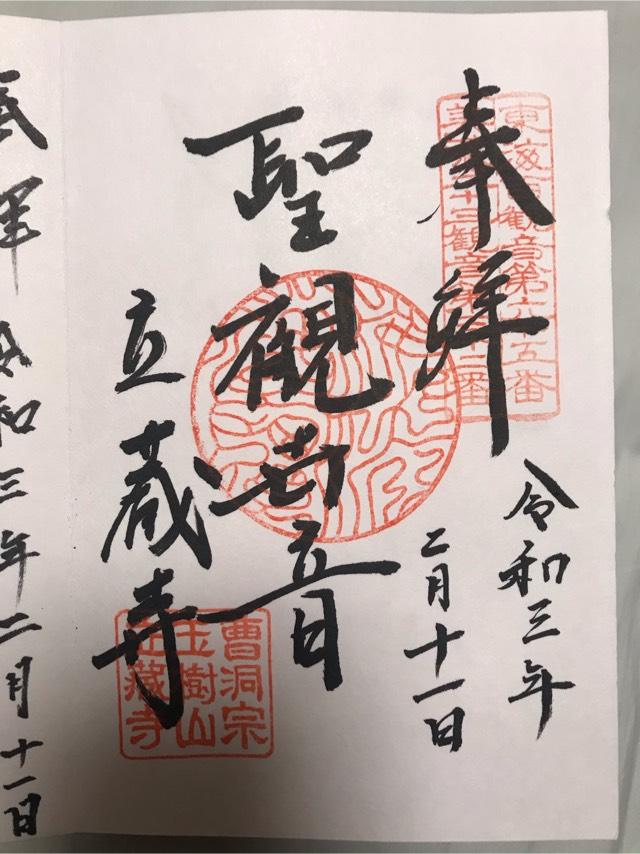 奉拝
東海百観音第六十五番
美濃三十三観音第三十二番
令和三年
二月十一日
聖観世音
立蔵寺
曹洞宗
玉樹山
立藏寺
奉拝 令和三年二月十一日